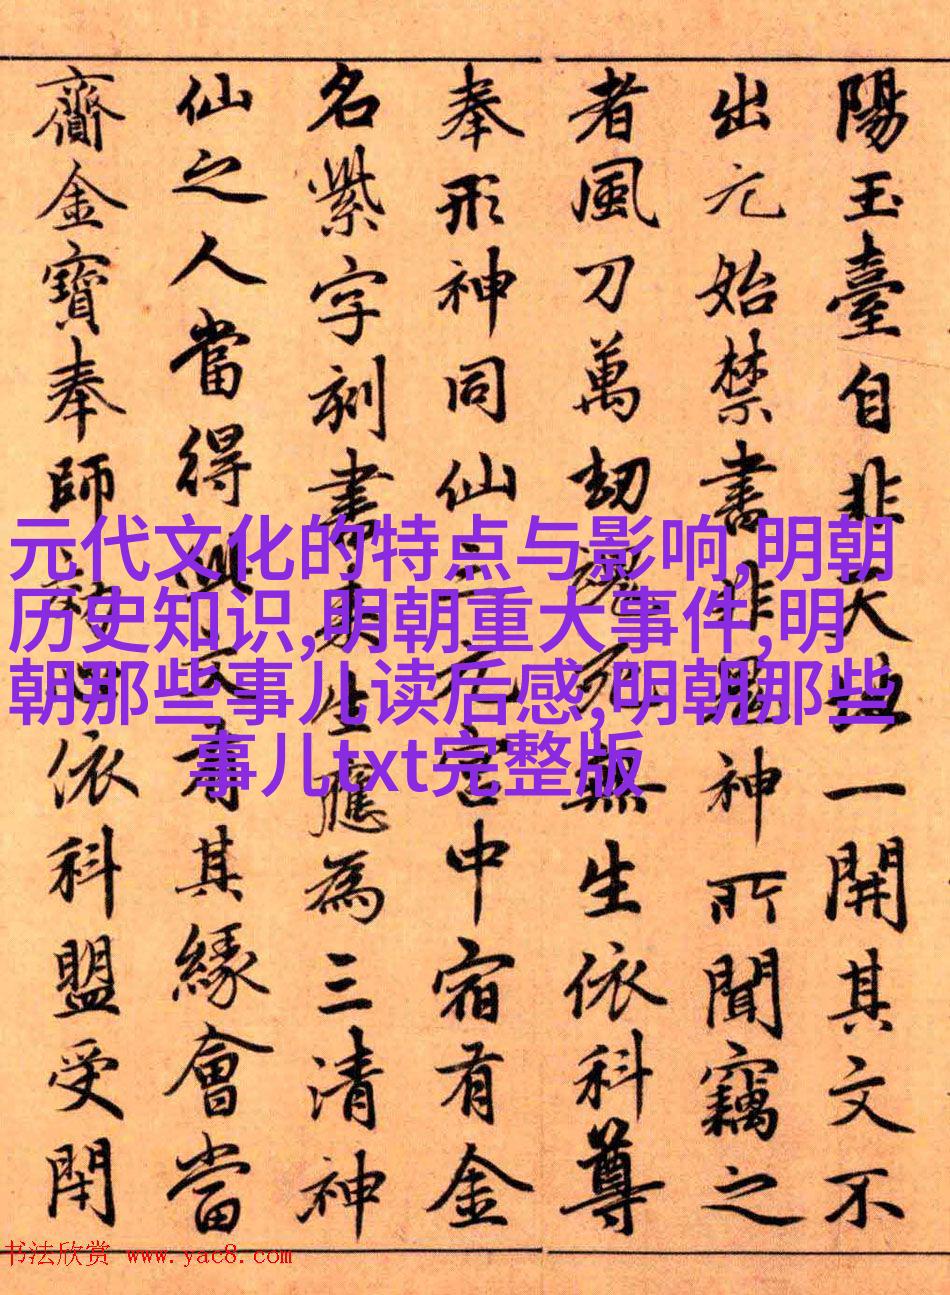 陽玉臺自非天地一開其文不
出元始禁書非鬼神所聞竊之
者風刀萬劫魂死無生依科尊
奉形神同仙三元宮中宿有金
名紫字刻書來生應為三清神
仙之人當得此文有其緣會當
齎金寶奉師心依科盟受閇
元代文化的特点与影响,明朝
历史知识,明朝重大事件,明
朝那些事儿读后感,明朝那些
事儿txt完整版
书法欣赏 www.yac8.com